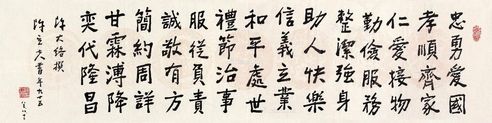 忠勇愛國
孝順齊家
仁愛接物
勤儉服務
整潔強身
助人快樂
信義立業
和平處世
禮節治事
服從負責
誠敬有方
簡約周詳
甘霖溥降
奕代隆昌
陳大絡撰
陳立夫書年九十五